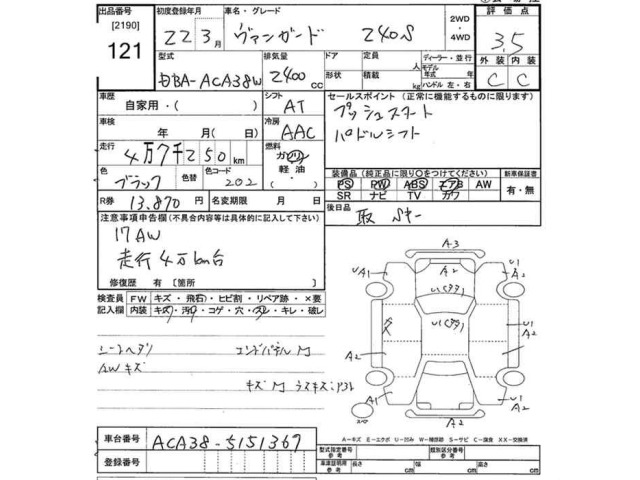 出品番号 初度登録年月 車名・グレード 2WD・4WD 評価点
[2190] 121 22年3月 ヴァンガード 240S 3.5
型式 排気量 ドア 定員 人 ディーラー・並行 外装 内装
DBA-ACA38W 2400CC 形状 積載 kg モデル年式 年 ハンドル 左・右 C C
車歴 シフト セールスポイント (正常に機能するものに限ります)
自家用・( ) AT プッシュスタート
車検 冷房 パドルシフト
年 月(日) AAC
走行 燃料
4万7千250km ガソリン 軽油・
色 色替 色コード 装備品 (純正品に限り○をつけてください) 新車保証書
ブラック 202 PS PW ABS エアB AW 有・無
SR ナビ TV カワ
R券 13,870円 名変期限 月 日 後日品
注意事項申告欄(不具合内容等は具体的に記入して下さい) 取 Sキー
17AW
走行4万km台
修復歴 有 [箇所 ]
検査員記入欄 FW キズ・飛石・ヒビ割・リペア跡・×要
内装 キズ・汚れ・コゲ・穴・スレ・キレ・破レ
シートヘタリ エンドパネルM
AWキズ
キズM
A3
UA1 A2 U1 A2
U(タタ)
U(タタ)
A2 U1 A2
A1 A2 U1 A2
A-キズ E-エクボ U-凹み W-補修跡 S-サビ C-腐食 XX-交換済
車台番号 ACA38-5151367
登録番号
型式指定番号 参考 類別区分番号 参考
車庫証明用 参考 長さ cm 幅 cm 高さ cm